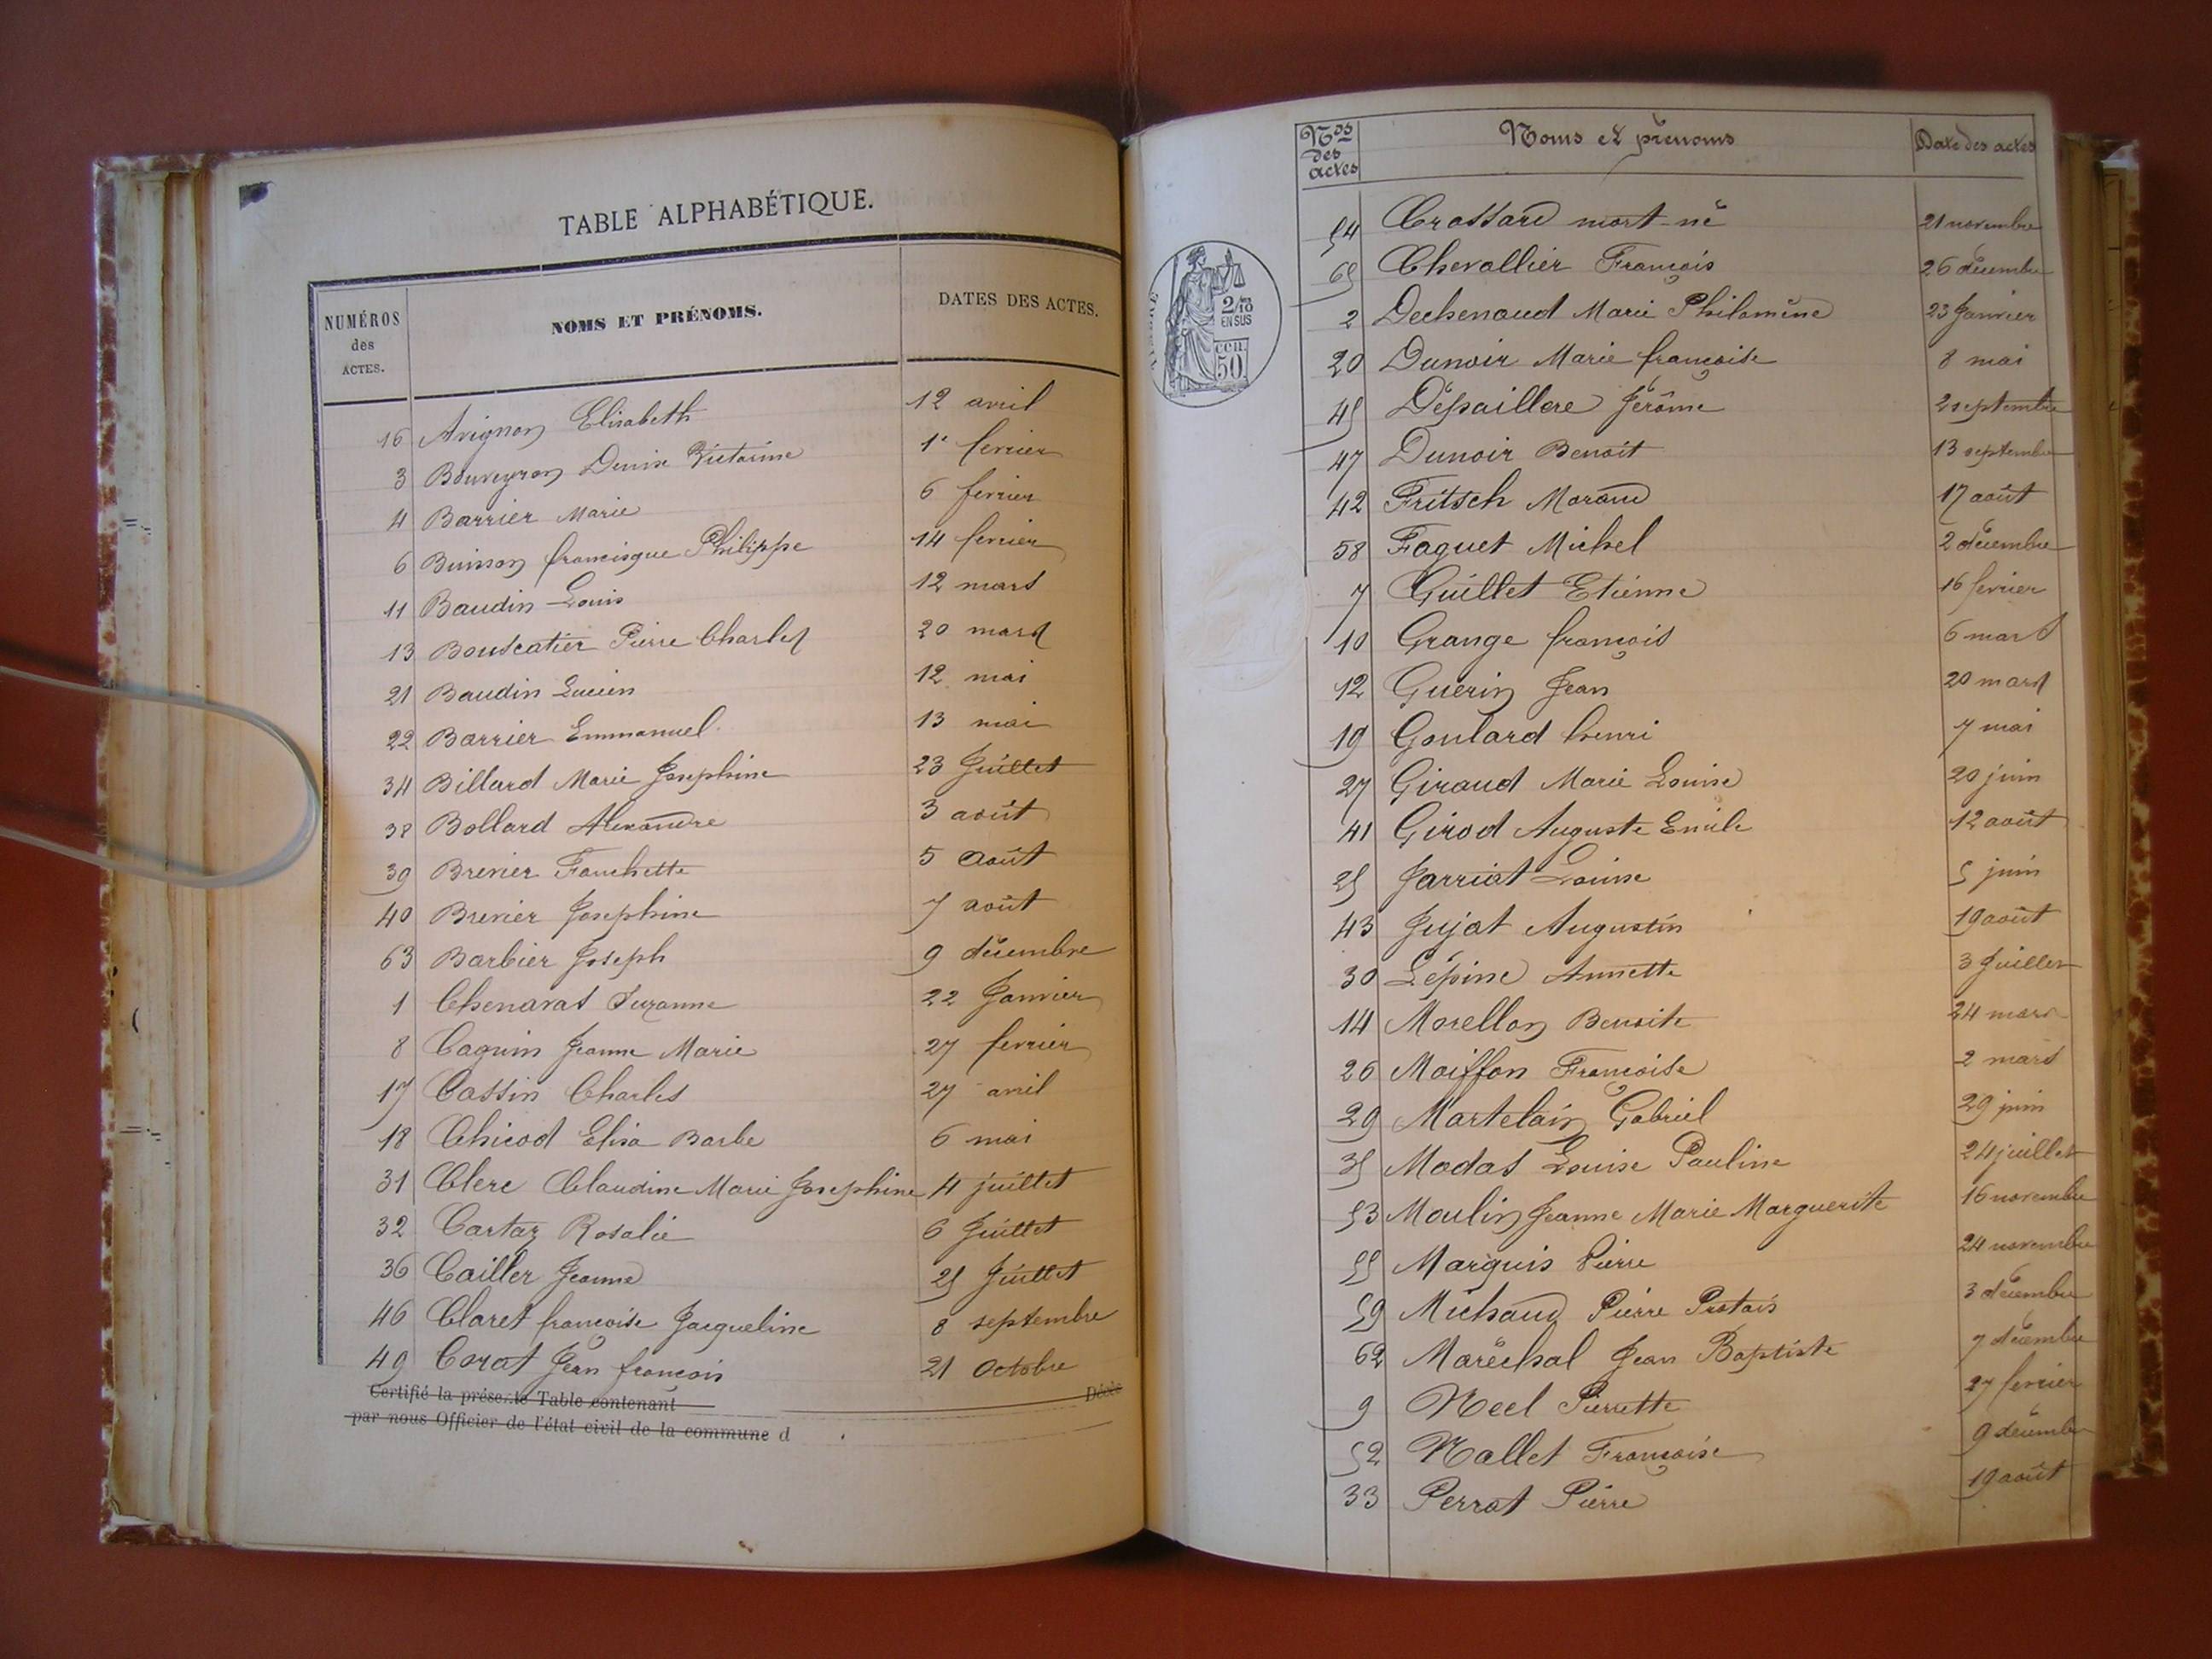 TABLE ALPHABÉTIQUE.
NUMÉROS des ACTES. NOMS ET PRÉNOMS. DATES DES ACTES.
16 Avignon Elisabeth 12 avril
3 Bouveyron Denise Victorine 1er fevrier
4 Barrier Marie 6 fevrier
6 Buisson francisque Philippe 14 fevrier
11 Baudin Louis 12 mars
13 Bouscatier Pierre Charles 20 mars
21 Baudin Lucien 12 mai
22 Barrier Emmanuel 13 mai
34 Billard Marie Josephine 23 Juillet
38 Bollard Alexandre 3 août
39 Brevier Fanchette 5 Août
40 Brevier Josephine 7 août
63 Barbier Joseph 9 décembre
1 Chenavas Suzanne 22 Janvier
8 Caquin Jeanne Marie 27 fevrier
17 Cassin Charles 27 avril
18 Chicod Elisa Barbe 6 mai
31 Clerc Claudine Marie Josephine 4 juillet
32 Cartaz Rosalie 6 Juillet
36 Cailler Jeanne 25 Juillet
46 Claret françoise Jacqueline 8 septembre
49 Corat Jean françois 21 Octobre
Certifié la présente Table contenant Décès
par nous Officier de l'état civil de la commune d
Nos des actes Noms et prénoms Date des actes
54 Crossard mort-né 21 novembre
65 Chevallier François 26 décembre
2 Dechenaud Marie Philomène 23 Janvier
20 Dunoir Marie françoise 8 mai
45 Dépaillere Jérôme 2 septembre
47 Dunoir Benoît 13 septembre
42 Fritsch Morand 17 août
58 Faquet Michel 2 décembre
7 Guillet Etienne 16 fevrier
10 Grange françois 6 mars
12 Guerin Jean 20 mars
19 Goulard henri 7 mai
27 Giraud Marie Louise 20 juin
41 Girod Auguste Emile 12 août
25 Jarriat Louise 5 juin
43 Jujat Augustin 19 août
30 Lépine Annette 3 Juillet
14 Morellon Benoite 24 mars
26 Moiffon Françoise 2 mars
29 Martelain Gabriel 29 juin
35 Modas Louise Pauline 24 juillet
53 Moulin Jeanne Marie Marguerite 16 novembre
55 Marquis Pierre 24 novembre
59 Michaud Pierre Protais 3 décembre
62 Maréchal Jean Baptiste 7 décembre
9 Neel Pierrette 27 fevrier
52 Nallet Françoise 9 décembre
33 Perrat Pierre 19 août
2/10
EN SUS
50